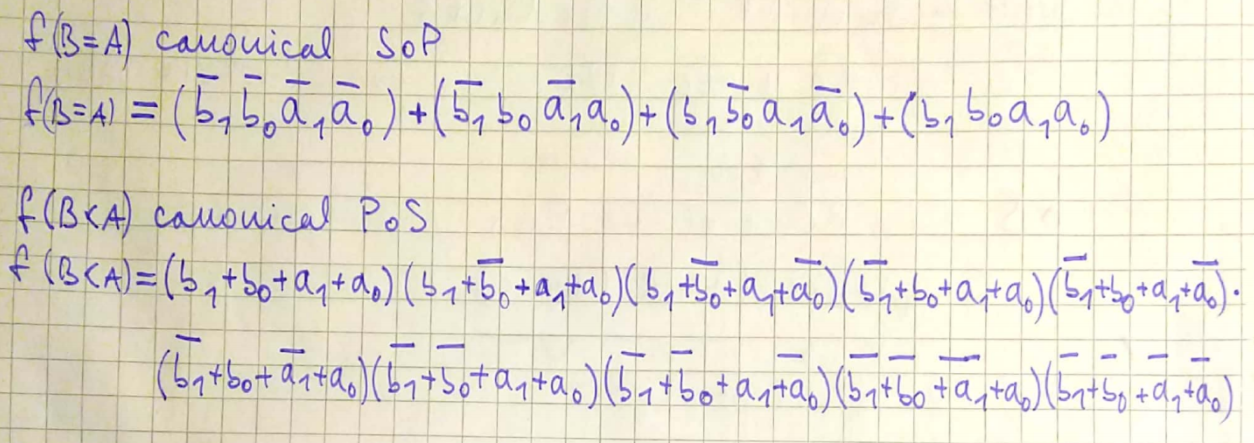 f(B=A) canonical SoP
f(B=A) = (b̅₁b̅₀a̅₁a̅₀)+(b̅₁b₀a̅₁a₀)+(b₁b̅₀a₁a̅₀)+(b₁b₀a₁a₀)
f(B<A) canonical PoS
f(B<A)=(b₁+b₀+a₁+a₀)(b₁+b̅₀+a₁+a₀)(b₁+b̅₀+a₁+a̅₀)(b̅₁+b₀+a₁+a₀)(b̅₁+b₀+a₁+a̅₀)·
(b̅₁+b₀+a̅₁+a₀)(b̅₁+b̅₀+a₁+a₀)(b̅₁+b̅₀+a₁+a̅₀)(b̅₁+b̅₀+a̅₁+a₀)(b̅₁+b̅₀+a̅₁+a̅₀)